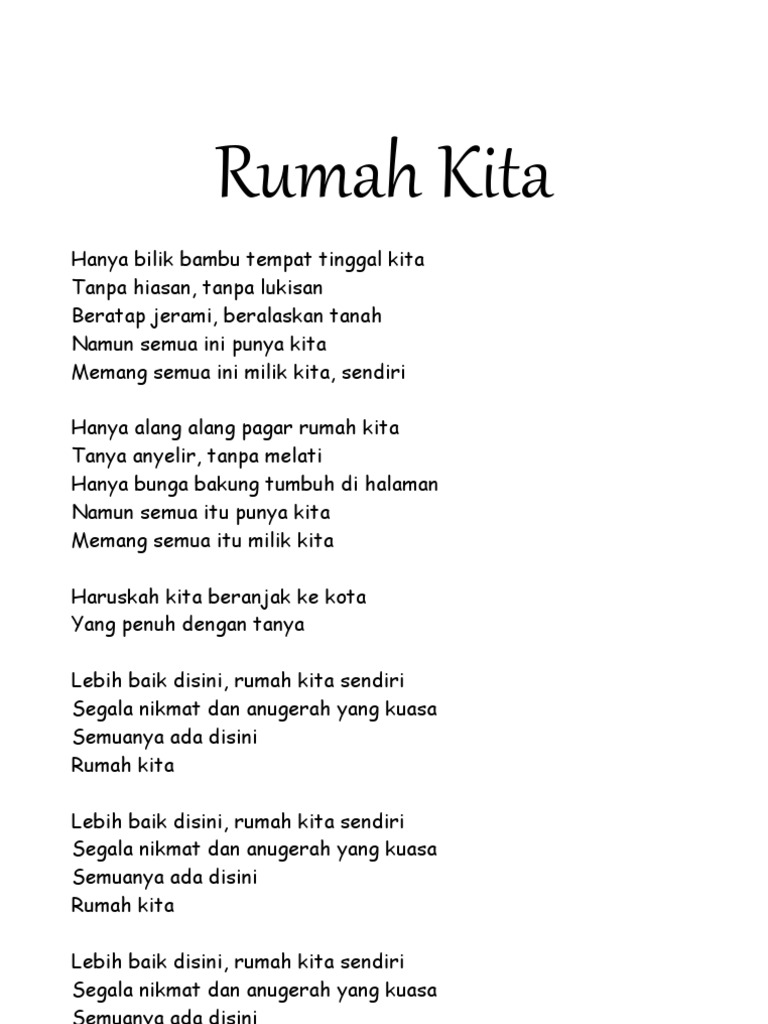 Rumah Kita
Hanya bilik bambu tempat tinggal kita
Tanpa hiasan, tanpa lukisan
Beratap jerami, beralaskan tanah
Namun semua ini punya kita
Memang semua ini milik kita, sendiri
Hanya alang alang pagar rumah kita
Tanya anyelir, tanpa melati
Hanya bunga bakung tumbuh di halaman
Namun semua itu punya kita
Memang semua itu milik kita
Haruskah kita beranjak ke kota
Yang penuh dengan tanya
Lebih baik disini, rumah kita sendiri
Segala nikmat dan anugerah yang kuasa
Semuanya ada disini
Rumah kita
Lebih baik disini, rumah kita sendiri
Segala nikmat dan anugerah yang kuasa
Semuanya ada disini
Rumah kita
Lebih baik disini, rumah kita sendiri
Segala nikmat dan anugerah yang kuasa
Semuanya ada disini